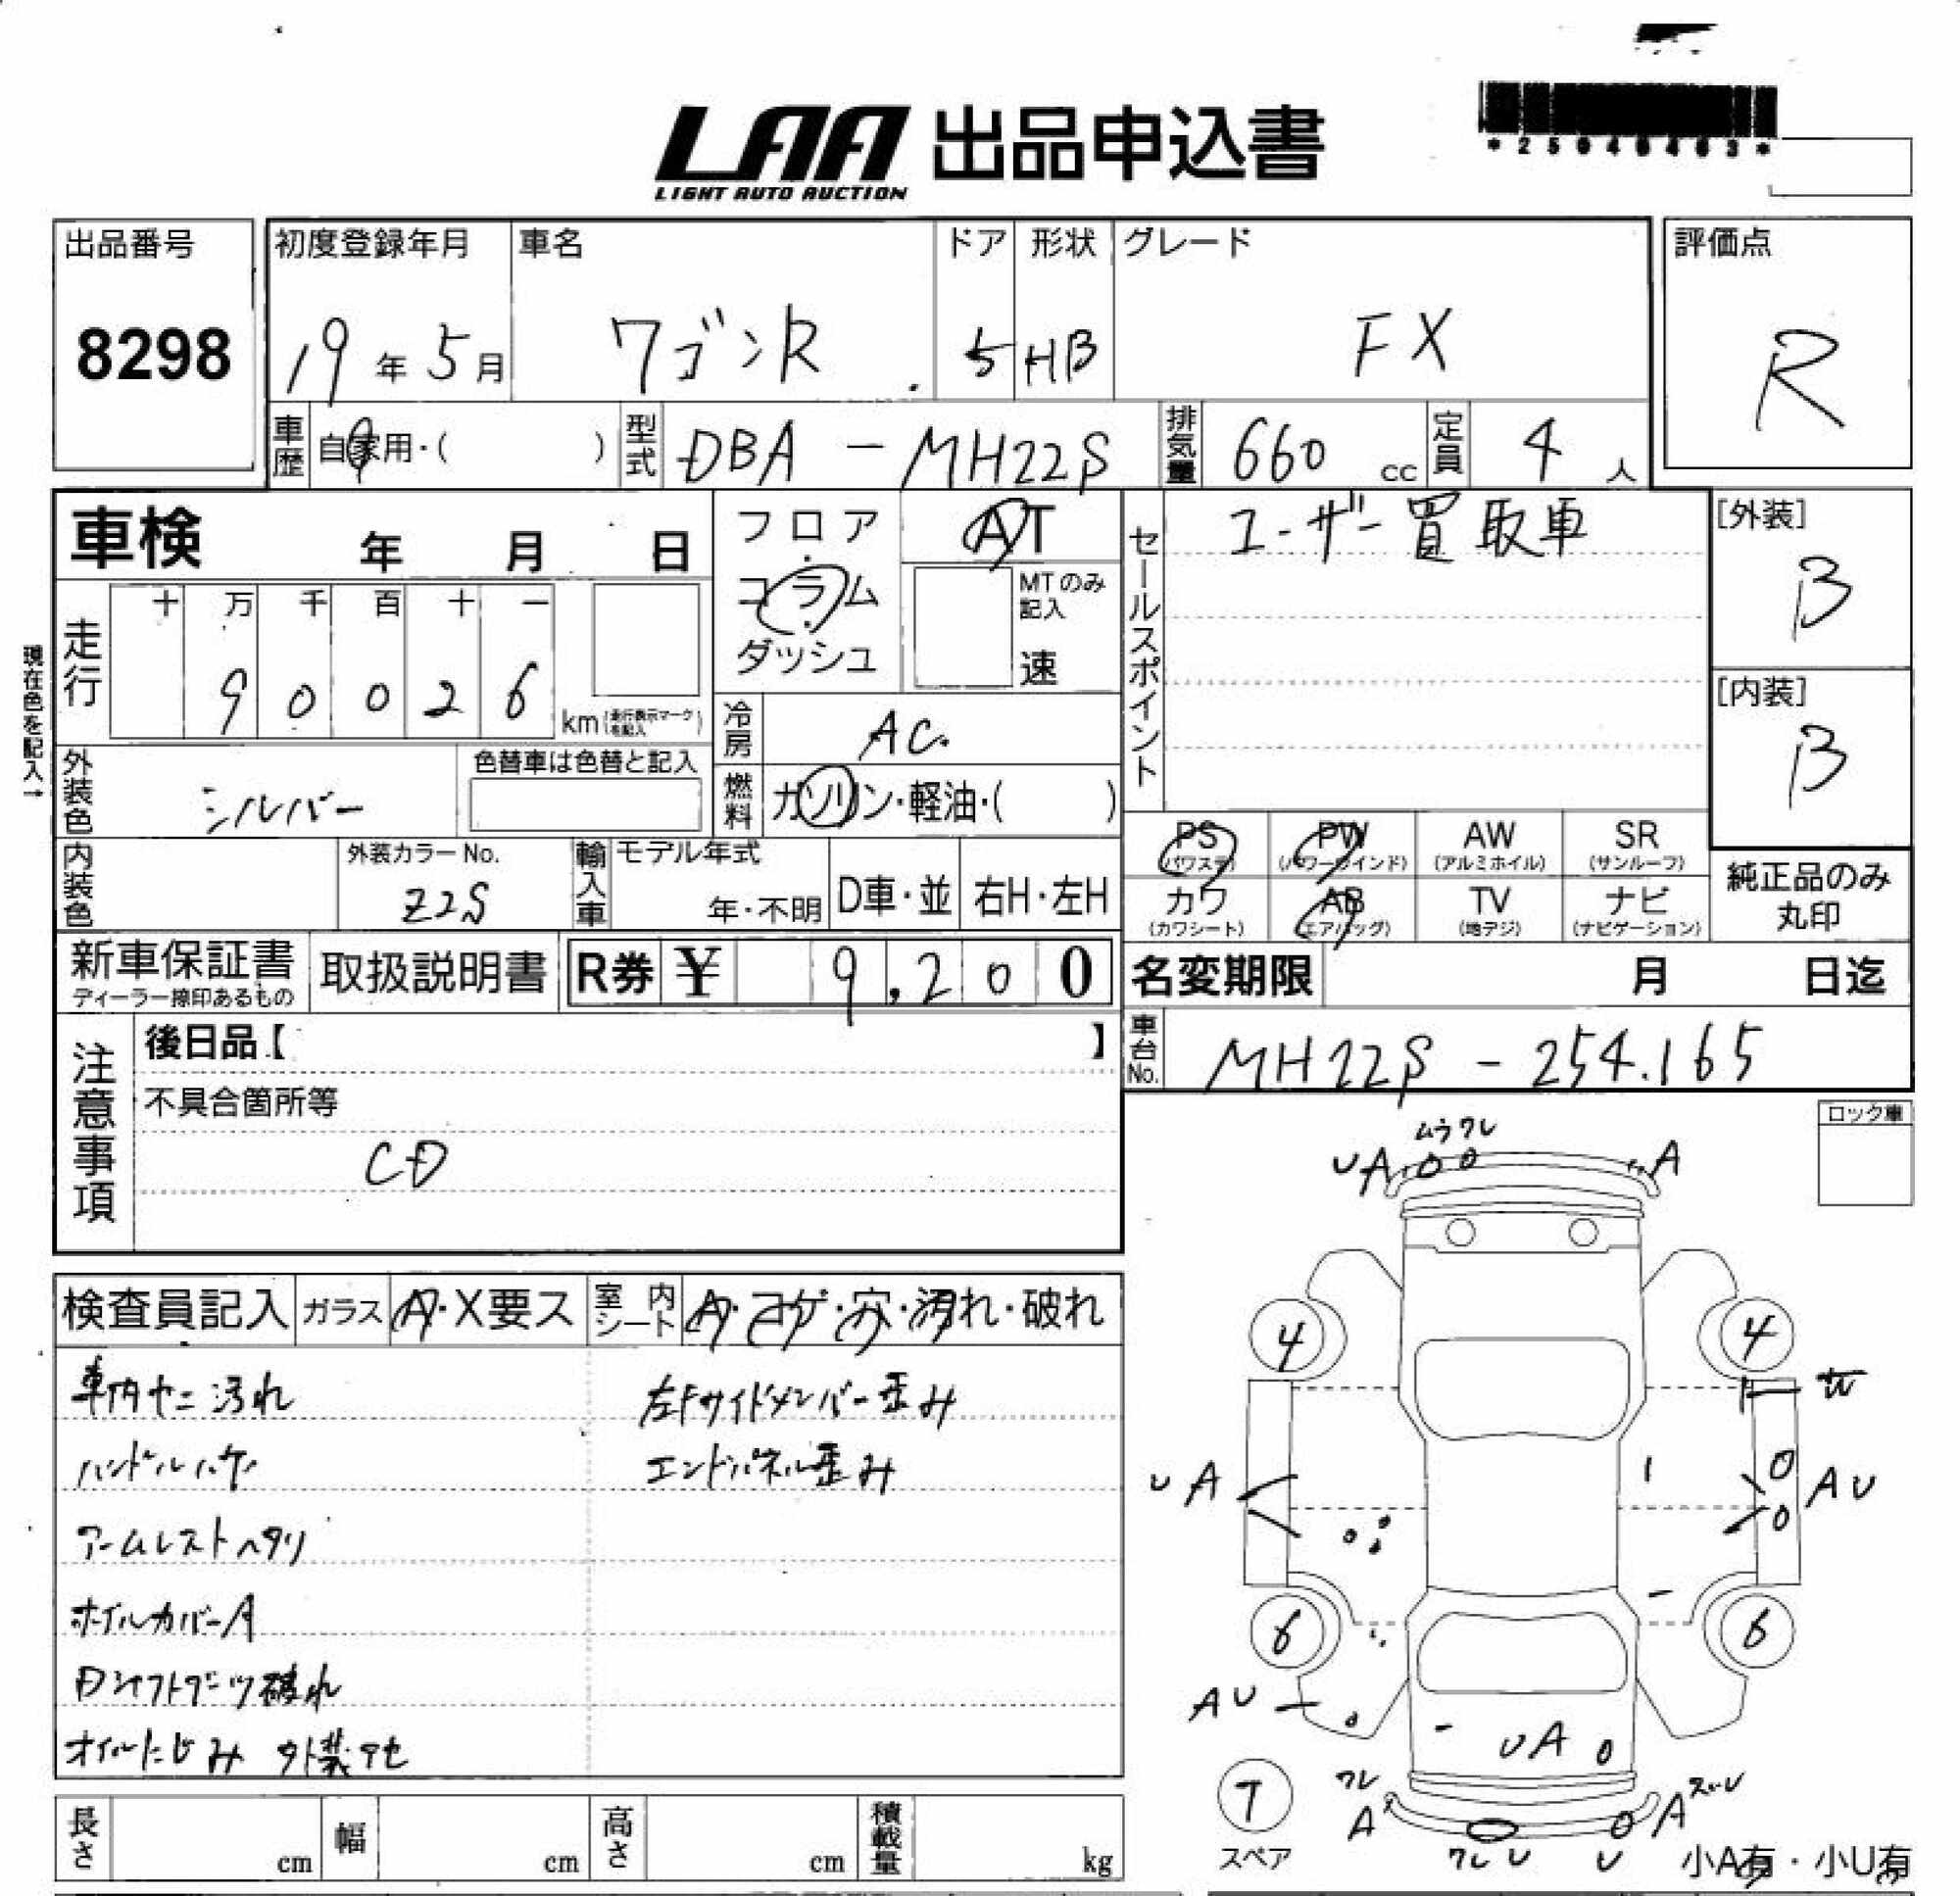 LAA 出品申込書
LIGHT AUTO AUCTION
*25040403*
出品番号
8298
初度登録年月
19年5月
車名
ワゴンR
ドア
5
形状
HB
グレード
FX
評価点
R
車歴
自家用・( )
型式
DBA - MH22S
排気量
660 cc
定員
4 人
車検 年 月 日
フロア
・
コラム
・
ダッシュ
AT
MTのみ
記入
速
セールスポイント
ユーザー買取車
[外装]
B
[内装]
B
現在色を記入→
走行
十 万 千 百 十 一
9 0 0 2 6
km(走行表示マークを記入)
冷房
AC.
外装色
シルバー
色替車は色替と記入
燃料
ガソリン・軽油・( )
PS
(パワステ)
PW
(パワーウインド)
AW
(アルミホイル)
SR
(サンルーフ)
カワ
(カワシート)
AB
(エアバッグ)
TV
(地デジ)
ナビ
(ナビゲーション)
純正品のみ
丸印
内装色
外装カラーNo.
Z2S
輸入車
モデル年式
年・不明
D車・並
右H・左H
新車保証書
ディーラー捺印あるもの
取扱説明書
R券 ¥ 9,200
名変期限 月 日迄
車台No.
MH22S - 254165
注意事項
後日品【 】
不具合箇所等
CD
ロック車
検査員記入
ガラス
A・X要ス
室内シート
A・コゲ・穴・汚れ・破れ
車内ヤニ汚れ
ハンドルハゲ
アームレストヘタリ
ホイルカバーA
Dシャフトブーツ破れ
オイルにじみ 外装アセ
左Fサイドメンバー歪み
エンドパネル歪み
ムラ ワレ
UA
A
4
4
UA
AU
6
6
AU
UA
T
スペア
ワレ
A
A
ズレ
ワレ U
U
小A有・小U有
長さ
cm
幅
cm
高さ
cm
積載量
kg